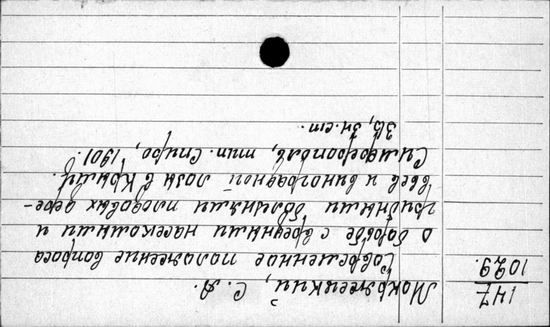 147
1029.
Мокржецкий, С. А.
Современное положение вопроса
о борьбе с вредными насекомыми и
грибными болезнями плодовых дере-
вьев и виноградной лозы в Крыму.
Симферополь, тип. Спиро, 1901.
36, 3н. cm.